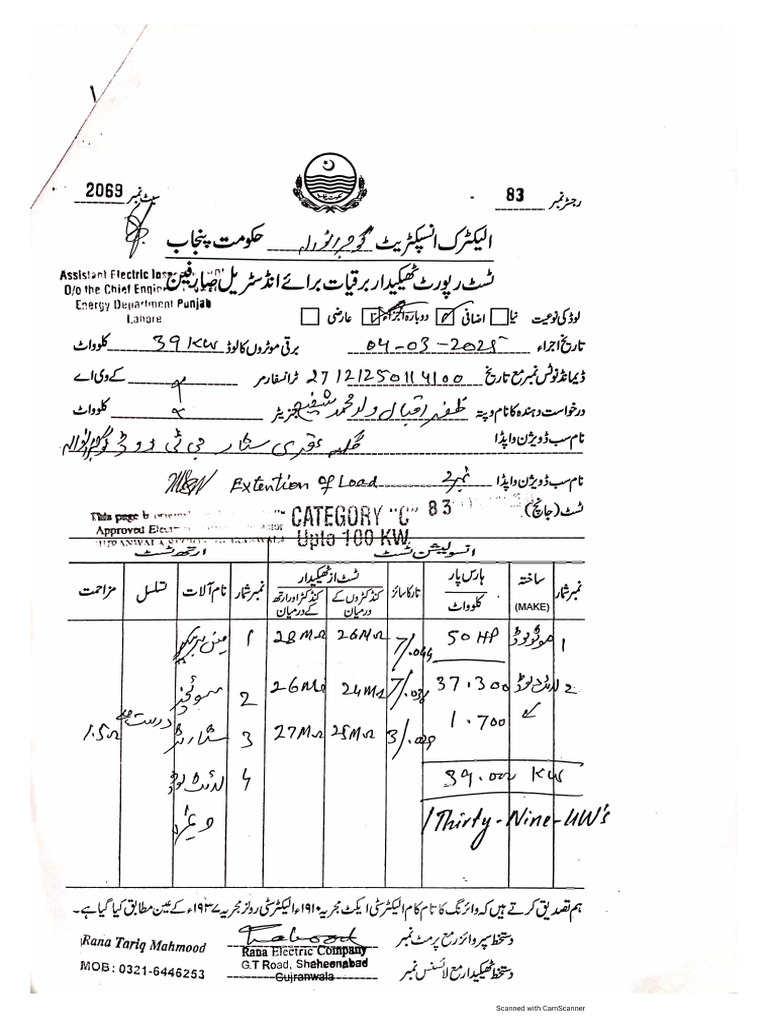 ۱
رجسٹر نمبر 83
سیٹ نمبر 2069
الیکٹرک انسپکٹریٹ گوجرانوالہ حکومت پنجاب
ٹسٹ رپورٹ ٹھیکیدار برقیات برائے انڈسٹریل صارفین
Assistant Electric
O/o the Chief Engin
Energy Department Punjab
Lahore
لوڈ کی نوعیت نیا اضافی دوبارہ اجراء عارضی
تاریخ اجراء 04-03-2025 برقی موٹروں کا لوڈ 39 KW کلو واٹ
ڈیمانڈ نوٹس نمبر مع تاریخ ٹرانسفارمر کے وی اے
درخواست دہندہ کا نام و پتہ ظفر اقبال ولد محمد شفیع جنریٹر کلو واٹ
نام سب ڈویژن واپڈا جی ٹی روڈ گوجرانوالہ
نام سب ڈویژن واپڈا نمبر 2 Extention of Load
ٹسٹ (جانچ) 83
CATEGORY "C"
Upto 100 KW.
This page is
Approved Elec
انسولیشن ٹسٹ ارتھ ٹسٹ
نمبر شمار ساختہ (MAKE) ہارس پاور کلو واٹ تار کا سائز ٹسٹ از ٹھیکیدار کنڈکٹروں کے درمیان کنڈکٹر اور ارتھ کے درمیان نمبر شمار نام آلات تسلسل مزاحمت
1 موٹر لوڈ 50 HP 7/.044 26MΩ 28MΩ 1
2 لائٹ لوڈ 37.300 7/.036 24MΩ 26MΩ 2 سوئچز
1.700 3/.029 25MΩ 27MΩ 3 سٹارٹر درست ہے 1.5Ω
39.000 KW 4 لائٹ لوڈ
Thirty-Nine-KW's وغیرہ
ہم تصدیق کرتے ہیں کہ وائرنگ کا تمام کام الیکٹرسٹی ایکٹ مجریہ ۱۹۱۰ء الیکٹرسٹی رولز مجریہ ۱۹۳۷ء کے عین مطابق کیا گیا ہے۔
دستخط سپروائزر مع پرمٹ نمبر
دستخط ٹھیکیدار مع لائسنس نمبر
Rana Electric Company
G.T Road, Shaheenabad
Gujranwala
Rana Tariq Mahmood
MOB: 0321-6446253
Scanned with CamScanner